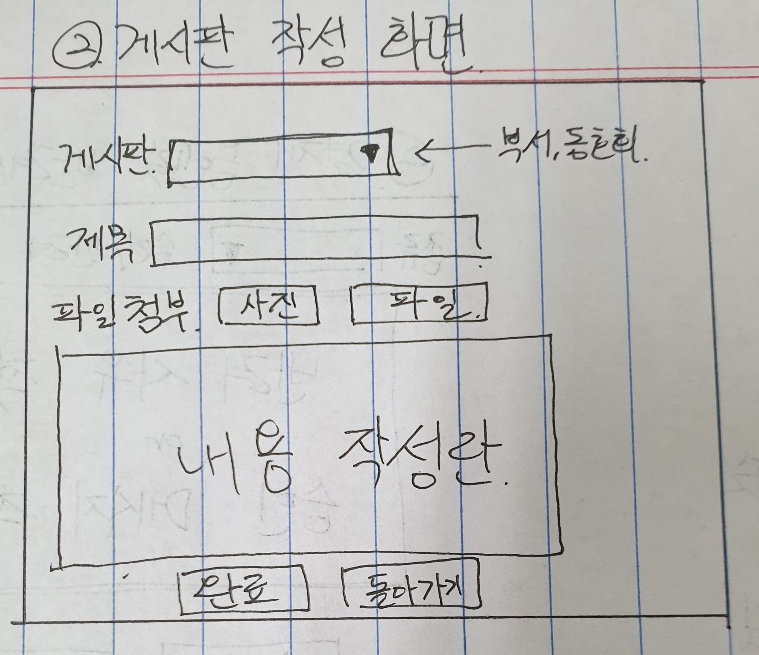 ② 게시판 작성 화면
게시판 ← 부서, 동호회.
제목
파일첨부. 사진 파일.
내용 작성란.
완료 돌아가기